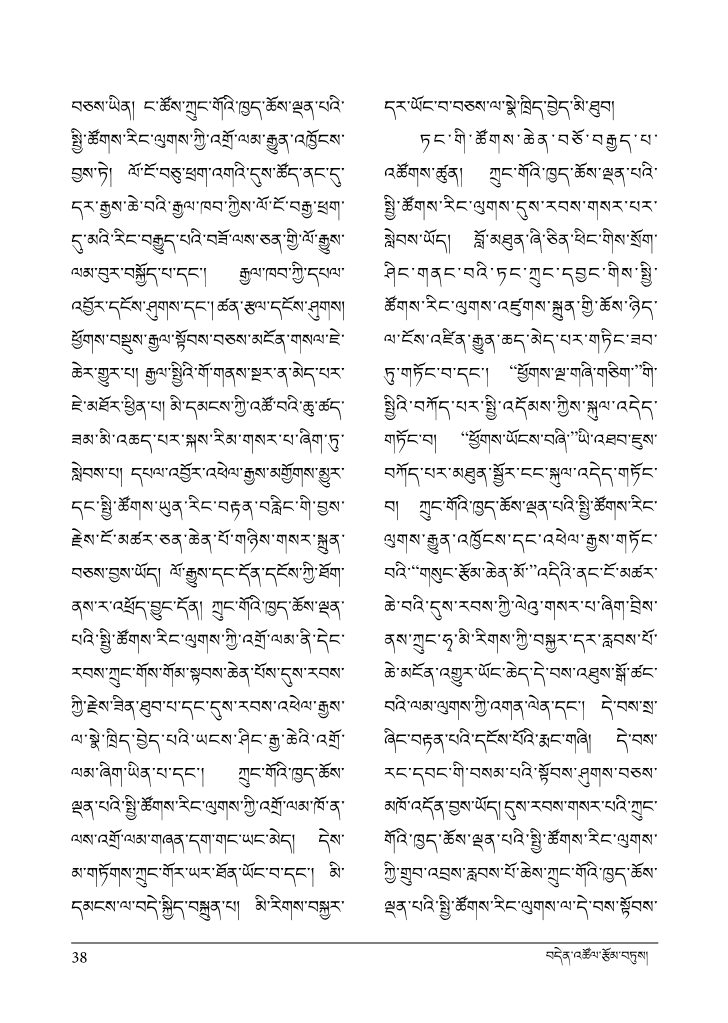 བཅས་ཡིན། ང་ཚོས་ཀྲུང་གོའི་ཁྱད་ཆོས་ལྡན་པའི་
སྤྱི་ཚོགས་རིང་ལུགས་ཀྱི་འགྲོ་ལམ་རྒྱུན་འཁྱོངས་
བྱས་ཏེ། ལོ་ངོ་བཅུ་ཕྲག་འགའི་དུས་ཚོད་ནང་དུ་
དར་རྒྱས་ཆེ་བའི་རྒྱལ་ཁབ་ཀྱིས་ལོ་ངོ་བརྒྱ་ཕྲག་
དུ་མའི་རིང་བརྒྱུད་པའི་བཟོ་ལས་ཅན་གྱི་ལོ་རྒྱུས་
ལམ་བུར་བསྐྱོད་པ་དང་། རྒྱལ་ཁབ་ཀྱི་དཔལ་
འབྱོར་དངོས་ཤུགས་དང་། ཚན་རྩལ་དངོས་ཤུགས།
ཕྱོགས་བསྡུས་རྒྱལ་སྟོབས་བཅས་མངོན་གསལ་ཇེ་
ཆེར་གྱུར་པ། རྒྱལ་སྤྱིའི་གོ་གནས་སྔར་ན་མེད་པར་
ཇེ་མཐོར་ཕྱིན་པ། མི་དམངས་ཀྱི་འཚོ་བའི་ཆུ་ཚད་
ཟམ་མི་འཆད་པར་སྐས་རིམ་གསར་པ་ཞིག་ཏུ་
སླེབས་པ། དཔལ་འབྱོར་འཕེལ་རྒྱས་མགྱོགས་མྱུར་
དང་སྤྱི་ཚོགས་ཡུན་རིང་བརྟན་བརླིང་གི་བྱས་
རྗེས་ངོ་མཚར་ཅན་ཆེན་པོ་གཉིས་གསར་སྐྲུན་
བཅས་བྱས་ཡོད། ལོ་རྒྱུས་དང་དོན་དངོས་ཀྱི་ཐོག་
ནས་ར་འཕྲོད་བྱུང་དོན། ཀྲུང་གོའི་ཁྱད་ཆོས་ལྡན་
པའི་སྤྱི་ཚོགས་རིང་ལུགས་ཀྱི་འགྲོ་ལམ་ནི་དེང་
རབས་ཀྲུང་གོས་གོམ་སྟབས་ཆེན་པོས་དུས་རབས་
ཀྱི་རྗེས་ཟིན་ཐུབ་པ་དང་དུས་རབས་འཕེལ་རྒྱས་
ལ་སྣེ་ཁྲིད་བྱེད་པའི་ཡངས་ཤིང་རྒྱ་ཆེའི་འགྲོ་
ལམ་ཞིག་ཡིན་པ་དང་། ཀྲུང་གོའི་ཁྱད་ཆོས་
ལྡན་པའི་སྤྱི་ཚོགས་རིང་ལུགས་ཀྱི་འགྲོ་ལམ་ཁོ་ན་
ལས་འགྲོ་ལམ་གཞན་དག་གང་ཡང་མེད། དེས་
མ་གཏོགས་ཀྲུང་གོར་ཡར་ཐོན་ཡོང་བ་དང་། མི་
དམངས་ལ་བདེ་སྐྱིད་བསྐྲུན་པ། མི་རིགས་བསྐྱར་
དར་ཡོང་བ་བཅས་ལ་སྣེ་ཁྲིད་བྱེད་མི་ཐུབ།
ཏང་གི་ཚོགས་ཆེན་བཅོ་བརྒྱད་པ་
འཚོགས་ཚུན། ཀྲུང་གོའི་ཁྱད་ཆོས་ལྡན་པའི་
སྤྱི་ཚོགས་རིང་ལུགས་དུས་རབས་གསར་པར་
སླེབས་ཡོད། བློ་མཐུན་ཞི་ཅིན་ཕིང་གིས་སྲོག་
ཤིང་གནང་བའི་ཏང་ཀྲུང་དབྱང་གིས་སྤྱི་
ཚོགས་རིང་ལུགས་འཛུགས་སྐྲུན་གྱི་ཆོས་ཉིད་
ལ་ངོས་འཛིན་རྒྱུན་ཆད་མེད་པར་གཏིང་ཟབ་
ཏུ་གཏོང་བ་དང་། “ཕྱོགས་ལྔ་གཞི་གཅིག་”གི་
སྤྱིའི་བཀོད་པར་སྤྱི་འདོམས་ཀྱིས་སྐུལ་འདེད་
གཏོང་བ། “ཕྱོགས་ཡོངས་བཞི་”ཡི་འཐབ་ཇུས་
བཀོད་པར་མཐུན་སྦྱོར་ངང་སྐུལ་འདེད་གཏོང་
བ། ཀྲུང་གོའི་ཁྱད་ཆོས་ལྡན་པའི་སྤྱི་ཚོགས་རིང་
ལུགས་རྒྱུན་འཁྱོངས་དང་འཕེལ་རྒྱས་གཏོང་
བའི་“གསུང་རྩོམ་ཆེན་མོ་”འདིའི་ནང་ངོ་མཚར་
ཆེ་བའི་དུས་རབས་ཀྱི་ལེའུ་གསར་པ་ཞིག་བྲིས་
ནས་ཀྲུང་ཧྭ་མི་རིགས་ཀྱི་བསྐྱར་དར་རླབས་པོ་
ཆེ་མངོན་འགྱུར་ཡོང་ཆེད་དེ་བས་འཐུས་སྒོ་ཚང་
བའི་ལམ་ལུགས་ཀྱི་འགན་ལེན་དང་། དེ་བས་སྲ་
ཞིང་བརྟན་པའི་དངོས་པོའི་རྨང་གཞི། དེ་བས་
རང་དབང་གི་བསམ་པའི་སྟོབས་ཤུགས་བཅས་
མཁོ་འདོན་བྱས་ཡོད། དུས་རབས་གསར་པའི་ཀྲུང་
གོའི་ཁྱད་ཆོས་ལྡན་པའི་སྤྱི་ཚོགས་རིང་ལུགས་
ཀྱི་གྲུབ་འབྲས་རླབས་པོ་ཆེས་ཀྲུང་གོའི་ཁྱད་ཆོས་
ལྡན་པའི་སྤྱི་ཚོགས་རིང་ལུགས་ལ་དེ་བས་སྟོབས་
38
བདེན་འཚོལ་རྩོམ་བཏུས།